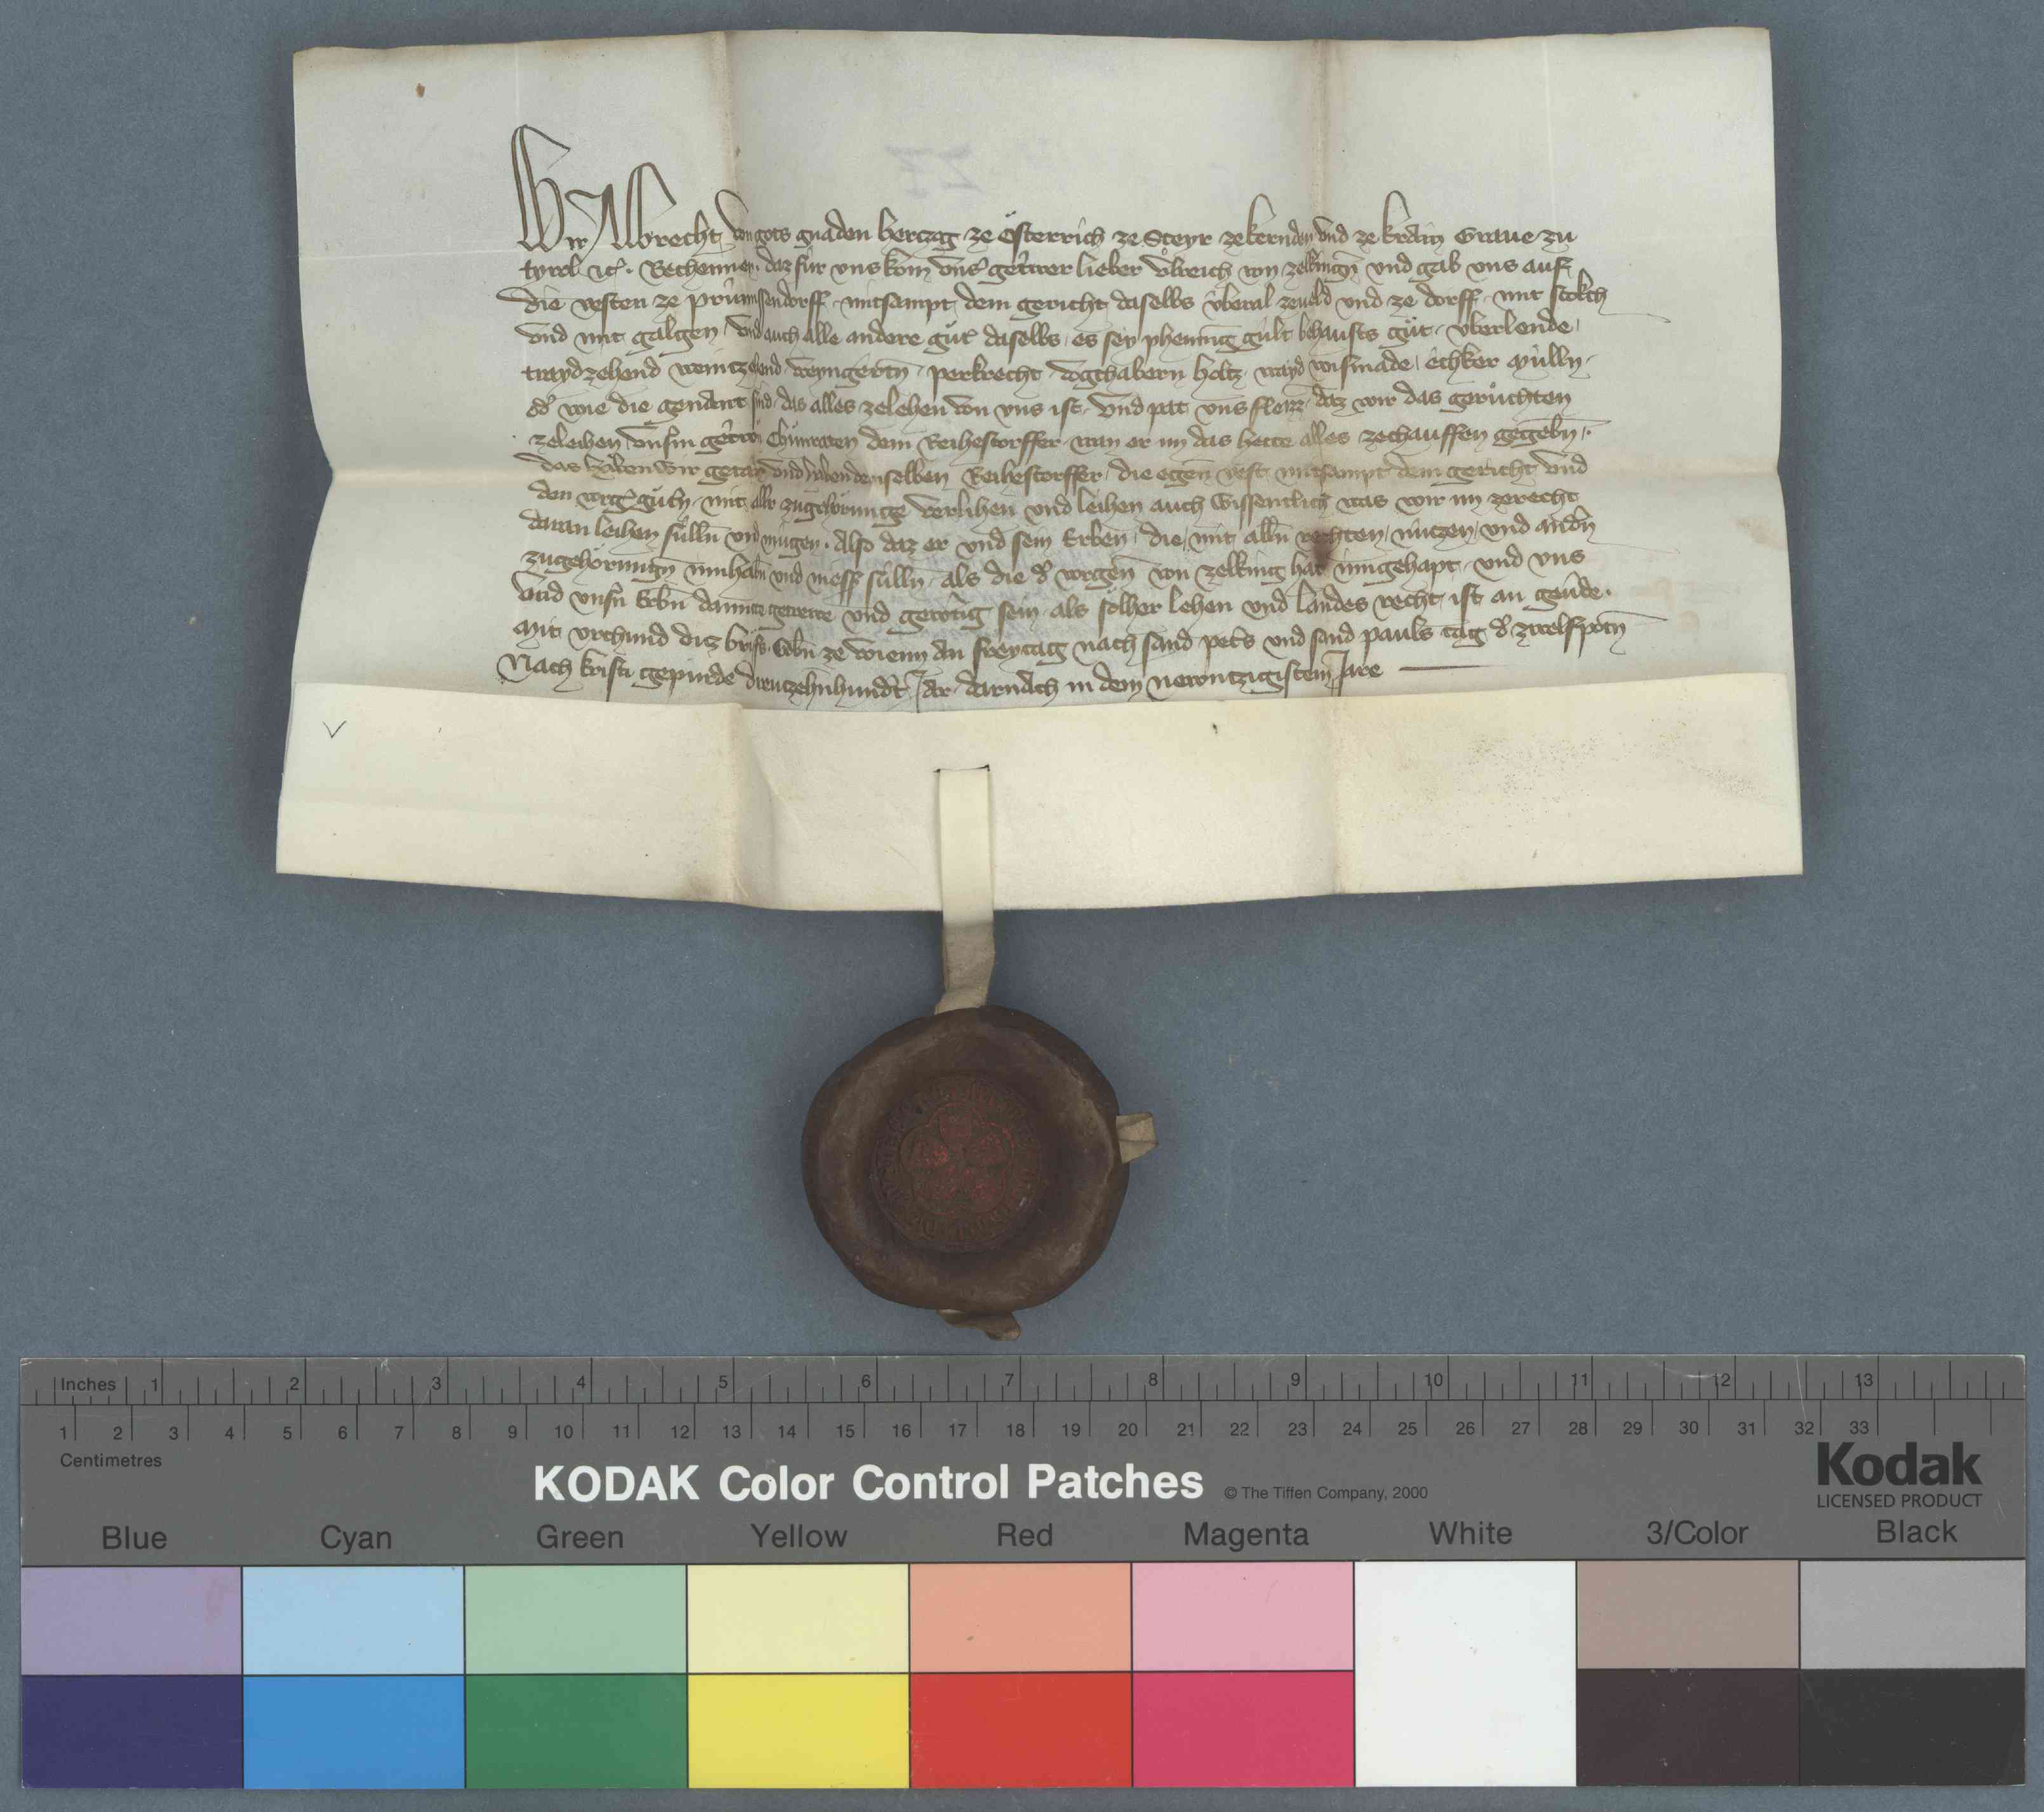 Wir Albrecht von gots gnaden herczog ze Österrich ze Steyr ze kernden und ze krain Graue zu
tyrol etc. Bechennen, daz für uns kom unser getrewer lieber Ulreich von zelkingen und gab uns auf
die vesten ze prünnsendorff mitsampt dem gericht daselbs überal ze veld und ze dorff mit stokch
und mit galgen, und auch alle andere güter daselbs, es sey phenning gült behausts gůt, uberlende,
traydzehend weintzehend weyngertn, perkrecht vogthabern holtz wayd wismade, echker mülln,
oder wie die genant sind, das alles ze lehen von uns ist, und pat uns fleizz, daz wir das geruchten
ze leihen unserm getrewn Chunraten dem Reihestorffer, wan er im das hette alles ze chauffen gegebn,
das haben wir getan und haben demselben Reihestorffer, die egen vest mitsampt dem gericht und
den vorg gütern, mit aller zugehörunge verlihen und leihen auch wissentlich was wir im ze recht
daran leihen sülln und mügen. Also daz er und sein Erben, die, mit alln rechten, nützen, und andern
zugehörungn innhabn und niessen sülln, als die der vorgen von zelking hat inngehapt, und uns
und unsern Erbn damit getrewe und gewertig sein, als solher lehen und landes recht ist an geuerde.
Mit urchund diz briefs. Gebn ze wienn an freytag nach sand peters und sand pauls tag der zwelfpotn
Nach kristi gepurde dreutzehnhundert Jar, darnach in dem newntzigistem Jare
Inches 1 2 3 4 5 6 7 8 9 10 11 12 13
1 2 3 4 5 6 7 8 9 10 11 12 13 14 15 16 17 18 19 20 21 22 23 24 25 26 27 28 29 30 31 32 33
Centimetres
KODAK Color Control Patches © The Tiffen Company, 2000
Kodak
LICENSED PRODUCT
Blue Cyan Green Yellow Red Magenta White 3/Color Black